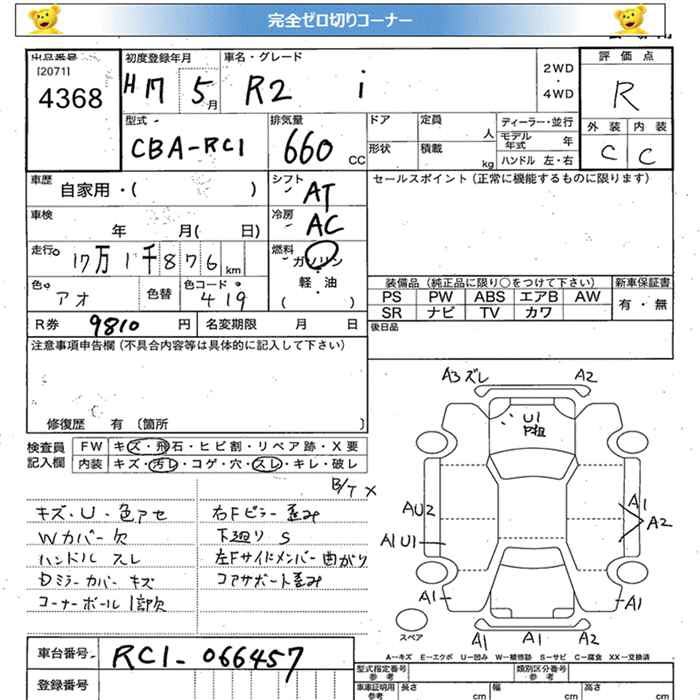 完全ゼロ切りコーナー
出品番号
[2071]
4368
初度登録年月
H17 5月
車名・グレード
R2 i
2WD
・
4WD
評価点
R
型式
CBA-RC1
排気量
660 CC
ドア
定員 人
形状
積載 kg
ディーラー・並行
モデル年式 年
ハンドル 左・右
外装 内装
C C
車歴
自家用・( )
シフト
AT
セールスポイント(正常に機能するものに限ります)
車検
年 月( 日)
冷房
AC
走行
17万1千876km
燃料
ガソリン
軽・油
( )
色
アオ
色替
色コード
419
装備品(純正品に限り○をつけて下さい)
新車保証書
PS PW ABS エアB AW
有・無
SR ナビ TV カワ
R券 9810 円
名変期限 月 日
後日品
注意事項申告欄(不具合内容等は具体的に記入して下さい)
修復歴 有 〔箇所 〕
検査員
記入欄
FW キズ・飛石・ヒビ割・リペア跡・X要
内装 キズ・汚レ・コゲ・穴・スレ・キレ・破レ
B/T X
キズ・U・色アセ
Wカバー欠
ハンドルスレ
Dミラーカバーキズ
コーナーポール1部欠
右Fピラー歪み
下廻りS
左Fサイドメンバー曲がり
コアサポート歪み
A3ズレ
A2
U1
AU2
A1U1
A1
A2
A1
A1
スペア
A1
A1
A2
A-キズ E-エクボ U-凹み W-補修跡 S-サビ C-腐食 XX-交換済
車台番号 RC1-066457
登録番号
型式指定番号
参考
類別区分番号
参考
車車証明用
参考
長さ cm
幅 cm
高さ cm